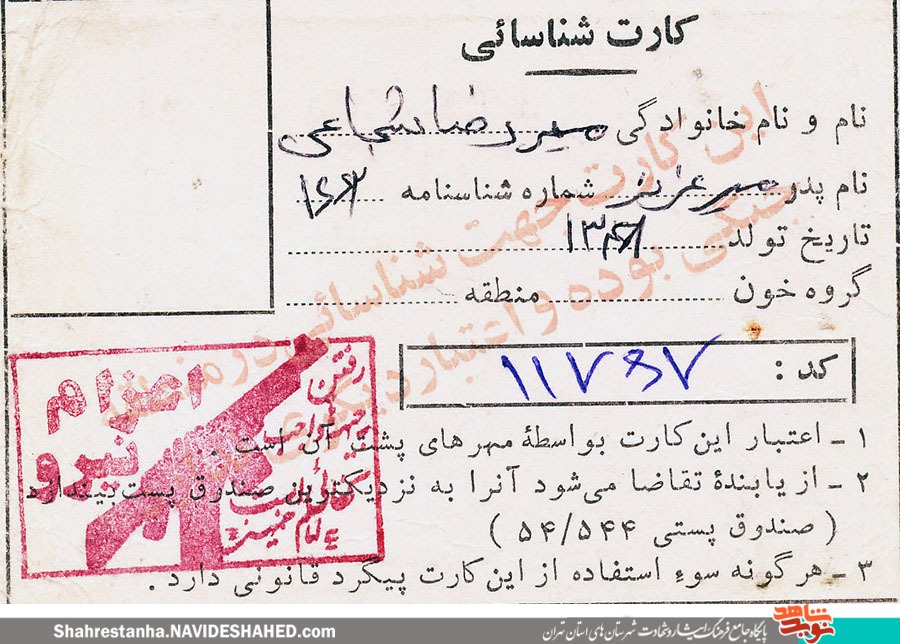 کارت شناسائی
نام و نام خانوادگی میررضا شجاعی
نام پدر میرعزیز شماره شناسنامه
تاریخ تولد
گروه خون منطقه
این کارت جهت شناسائی در مناطق
جنگی بوده و اعتبار دیگری
کد : ۱۱۷۶۷
اعزام
نیرو
رفتن
جبهه واجب
کفائی است
امام خمینی
۱ - اعتبار این کارت بواسطهٔ مهرهای پشت آن است .
۲ - از یابندهٔ تقاضا می‌شود آنرا به نزدیکترین صندوق پست بیندازد
( صندوق پستی ۵۴/۵۴۴ )
۳ - هرگونه سوء استفاده از این کارت پیگرد قانونی دارد .
Shahrestanha.NAVIDESHAHED.com
نوید شاهد
پایگاه جامع فرهنگ ایثار و شهادت شهرستان های استان تهران